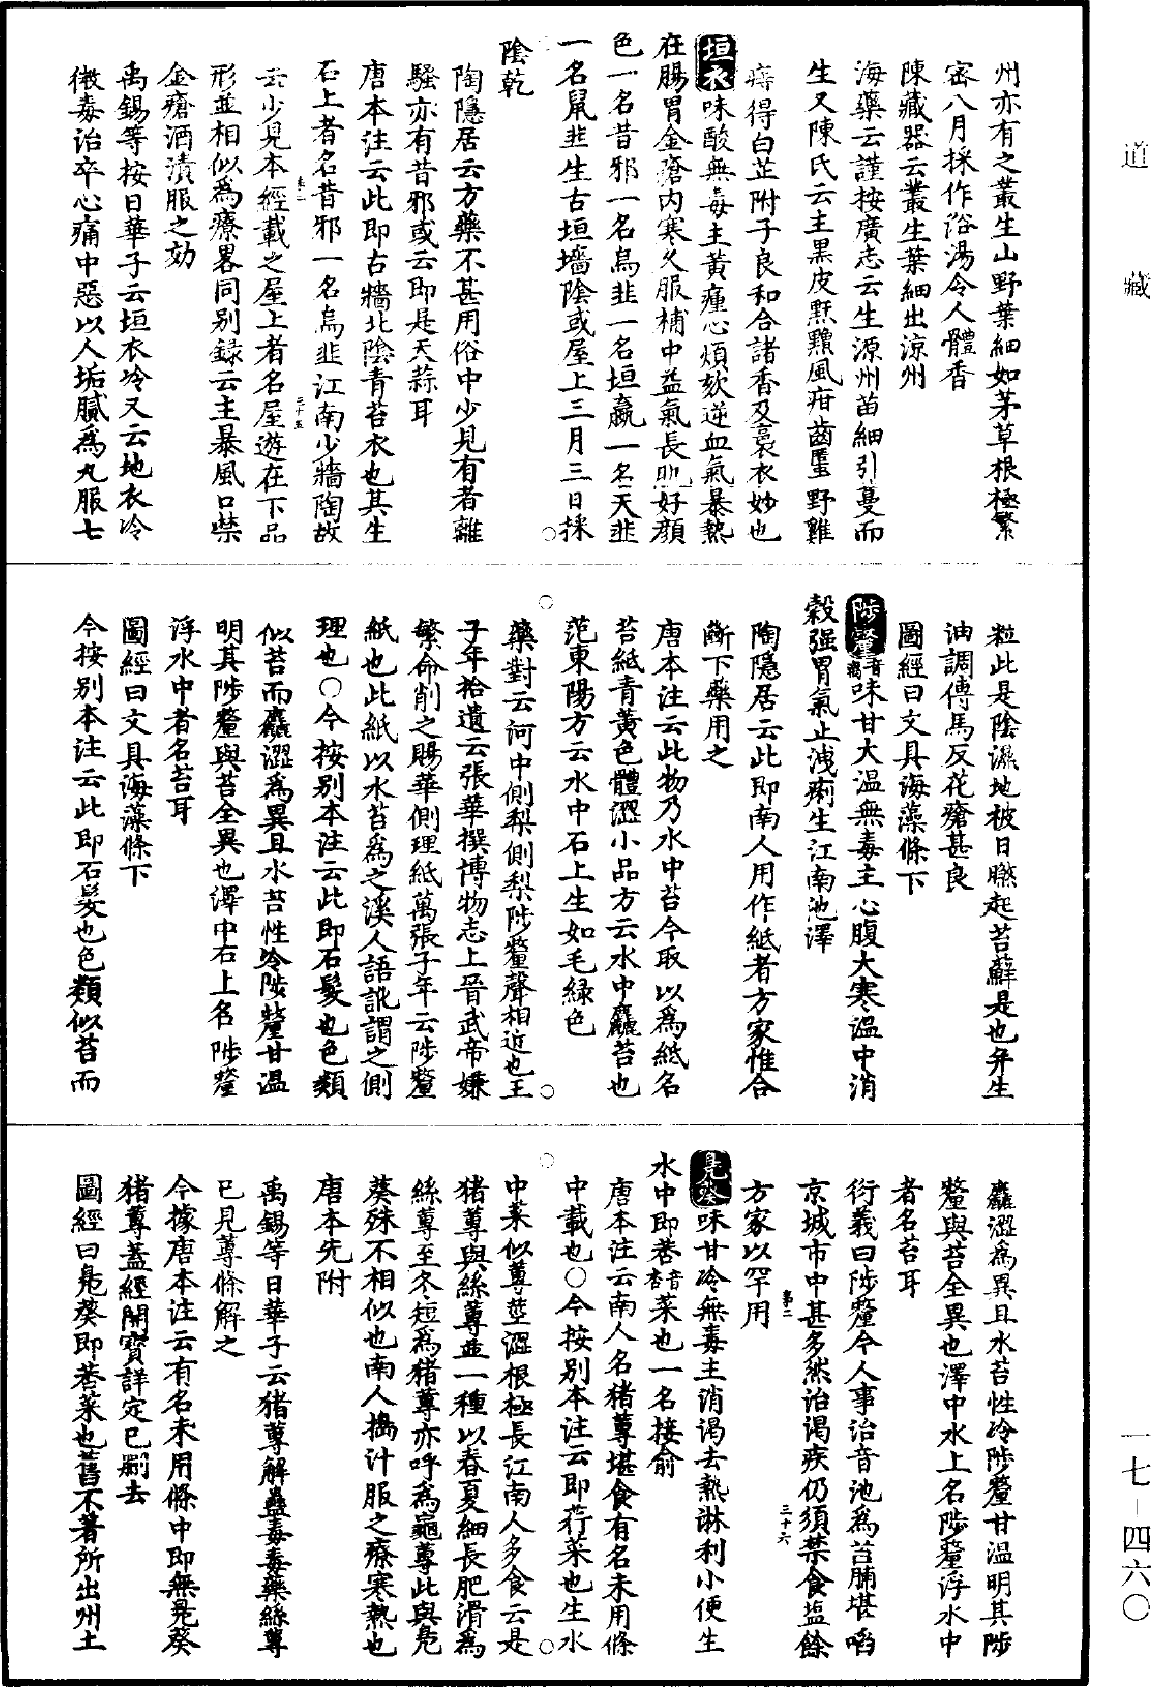 道藏
州亦有之叢生山野葉細如茅草根極繁
密八月採作浴湯令人體香
陳藏器云叢生葉細出涼州
海藥云謹按廣志云生源州苗細引蔓而
生又陳氏云主黑皮䵟䵳風疳齒䘌野雞
痔得白芷附子良和合諸香及裛衣妙也
垣衣味酸無毒主黃疸心煩欬逆血氣暴熱
在腸胃金瘡內寒久服補中益氣長肌好顏
色一名昔邪一名烏韭一名垣嬴一名天韭
一名鼠韭生古垣墻陰或屋上三月三日採
陰乾
陶隱居云方藥不甚用俗中少見有者離
騷亦有昔邪或云即是天蒜耳
唐本注云此即古牆北陰青苔衣也其生
石上者名昔邪一名烏韭江南少牆陶故
云少見本經載之屋上者名屋遊在下品
形並相似為療畧同別錄云主暴風口噤
金瘡酒漬服之効
禹錫等按日華子云垣衣冷又云地衣冷
微毒治卒心痛中惡以人垢膩為丸服七
粒此是陰濕地被日曬起苔蘚是也并生
油調傅馬反花瘡甚良
圖經曰文具海藻條下
陟釐音離味甘大溫無毒主心腹大寒溫中消
穀强胃氣止洩痢生江南池澤
陶隱居云此即南人用作紙者方家惟合
斷下藥用之
唐本注云此物乃水中苔今取以為紙名
苔紙青黃色體澀小品方云水中麤苔也
范東陽方云水中石上生如毛綠色
藥對云河中側梨側梨陟釐聲相近也王
子年拾遺云張華撰博物志上晉武帝嫌
繁命削之賜華側理紙萬張子年云陟釐
紙也此紙以水苔為之溪人語訛謂之側
理也○今按別本注云此即石髮也色類
似苔而麤澀為異且水苔性冷陟釐甘溫
明其陟釐與苔全異也澤中石上名陟釐
浮水中者名苔耳
圖經曰文具海藻條下
今按別本注云此即石髮也色類似苔而
麤澀為異且水苔性冷陟釐甘溫明其陟
釐與苔全異也澤中水上名陟釐浮水中
者名苔耳
衍義曰陟釐今人事治音池為苔脯堪啗
京城市中甚多然治渴疾仍須禁食塩餘
方家以罕用
鳧葵味甘冷無毒主消渴去熱淋利小便生
水中即莕音杏菜也一名接俞
唐本注云南人名猪蓴堪食有名未用條
中載也○今按別本注云即荇菜也生水
中菜似蓴莖澀根極長江南人多食云是
猪蓴與絲蓴並一種以春夏細長肥滑為
絲蓴至冬短為猪蓴亦呼為龜蓴此與鳧
葵殊不相似也南人搗汁服之療寒熱也
唐本先附
禹錫等日華子云猪蓴解蠱毒毒藥絲蓴
已見蓴條解之
今據唐本注云有名未用條中即無鳧葵
猪蓴蓋經開寶詳定已刪去
圖經曰鳧葵即莕菜也舊不著所出州土
三十五
三十六
一七－四六〇